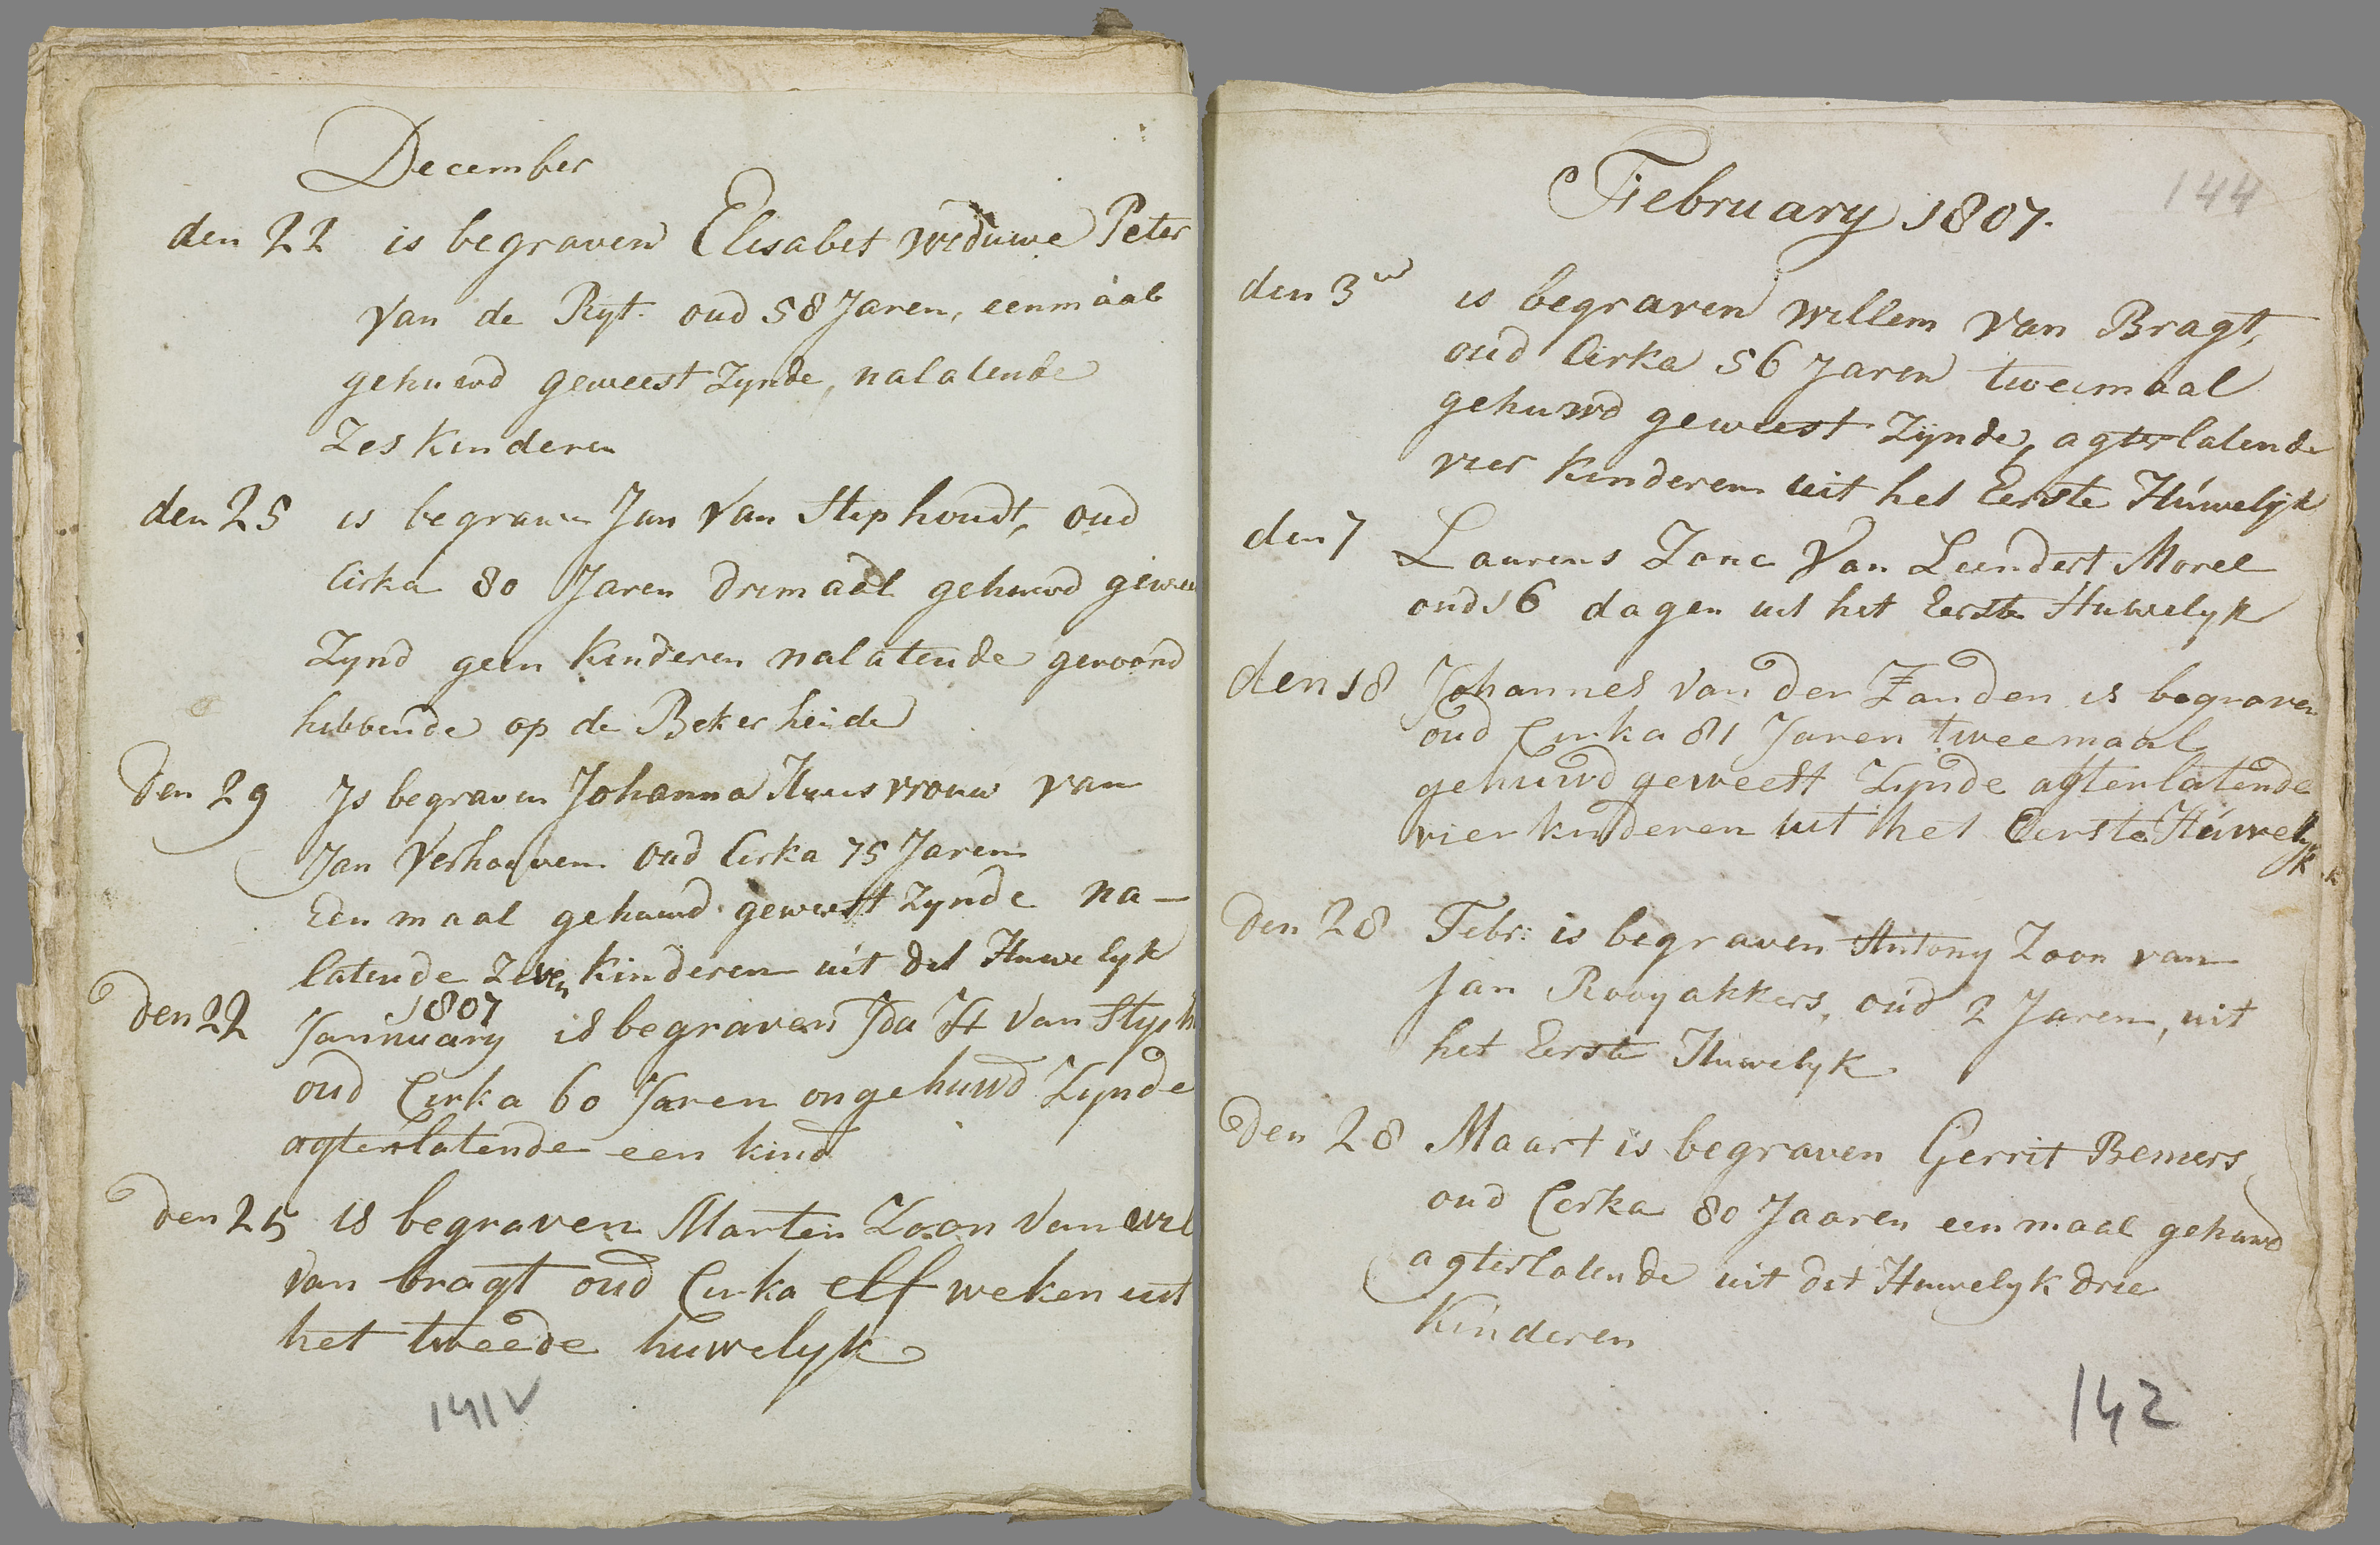 December
den 22 is begraven Elisabet weduwe Peter
van de Ryt. oud 58 Jaren, eenmaal
gehuwd geweest Zynde, nalatende
Zes Kinderen
den 25 is begraven Jan Van Stiphoudt, oud
Cirka 80 Jaren driemaal gehuwd gewee
Zynd geen Kinderen nalatende gewoond
hebbende op de Beker heide
den 29 Is begraven Johanna Huusvrouw van
Jan Verhoeven oud Cirka 75 Jaren
Een maal gehuwd geweest Zynde na-
latende Zeven Kinderen uit dit Huwelyk
1807
den 22 Jannuary is begraven Ida H Van Styph
oud Cirka 60 Jaren ongehuwd Zynde
agterlatende een kind
den 25 is begraven Marten Zoon Van Wil
van bragt oud Cirka elf weken uit
het tweede huwelyk
141v
February 1807.
144
den 3 is begraven Willem Van Bragt,
oud Cirka 56 Jaren tweemaal
gehuwd geweest Zijnde, agterlatende
vier Kinderen uit het Eerste Húwelijk
den 7 Laurens Zone Van Leendert Morel
oud 16 dagen uit het Eerste Huwelyk
den 18 Johannes van der Zanden is begraven
oud Cirka 81 Jaren tweemaal
gehuwd geweest Zynde agterlatende
vier kinderen uit het Eerste Húwelyk
den 28 Febr: is begraven Antony Zoon van
Jan Rooyakkers, oud 2 Jaren, uit
het Eerste Huwelyk
den 28 Maart is begraven Gerrit Bemers
oud Cirka 80 Jaaren eenmaal gehuwd
agterlatende uit dit Huwelyk drie
Kinderen
142